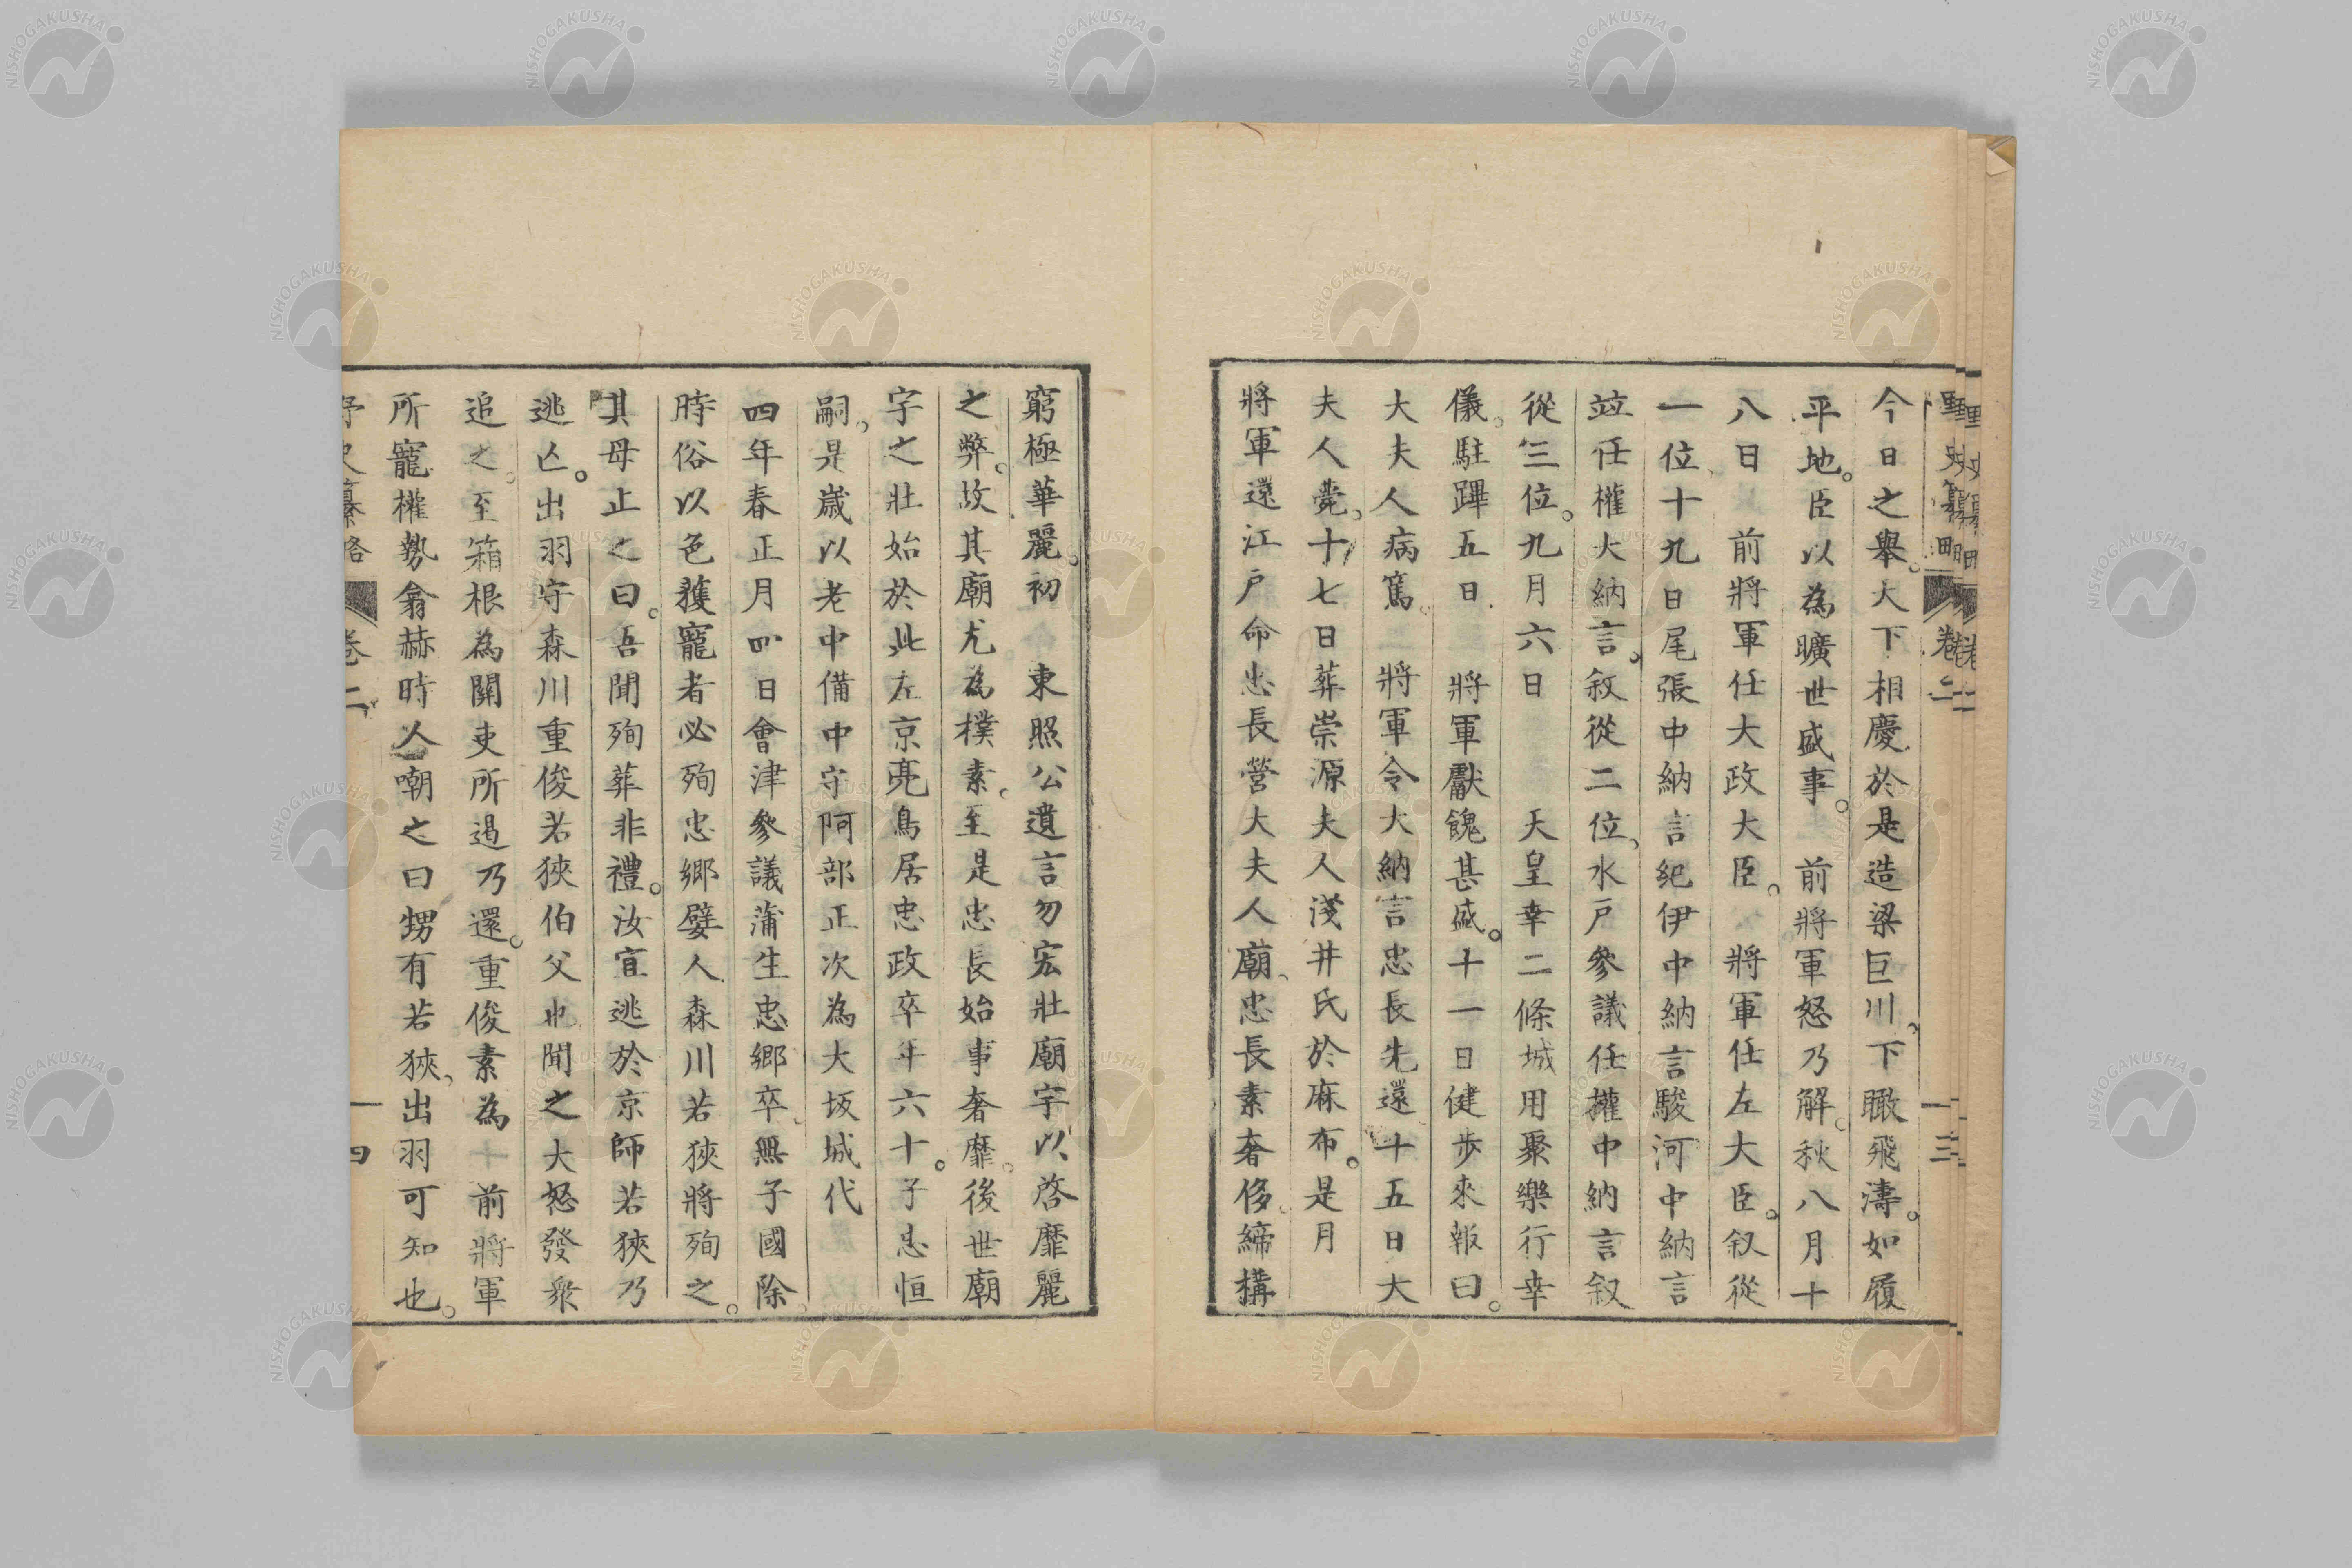 今日之舉。天下相慶於是造梁巨川。下瞰飛濤。如履
平地。臣以為曠世盛事。 前將軍怒乃解。秋八月十
八日 前將軍任大政大臣。 將軍任左大臣。叙從
一位、十九日尾張中納言紀伊中納言駿河中納言
竝任權大納言。敘從二位、水戶參議任權中納言叙
從三位。九月六日 天皇幸二條城用聚樂行幸
儀。駐蹕五日 將軍獻餽甚盛。十一日健步來報曰。
大夫人病篤。 將軍令大納言忠長先還十五日大
夫人薨。十七日葬崇源夫人淺井氏於麻布。是月
將軍還江戶命忠長營大夫人廟、忠長素奢侈。締構
窮極華麗。初 東照公遺言勿宏壯廟宇以啓靡麗
之弊。故其廟尤為樸素。至是忠長始事奢靡。後世廟
宇之壯始於此左京亮鳥居忠政卒年六十。子忠恒
嗣。是歲以老中備中守阿部正次為大坂城代
四年春正月四日會津參議蒲生忠鄉卒。無子國除
時俗以色獲寵者必殉忠鄉嬖人森川若狹將殉之。
其母止之曰。吾聞殉葬非禮。汝宜逃於京師若狹乃
逃亡。出羽守森川重俊若狹伯父也聞之大怒發衆
追之。至箱根為關吏所遏乃還。重俊素為 前將軍
所寵權勢翕赫時人嘲之曰甥有若狹、出羽可知也。
野史纂略 卷二 十三
野史纂略 卷二 十四